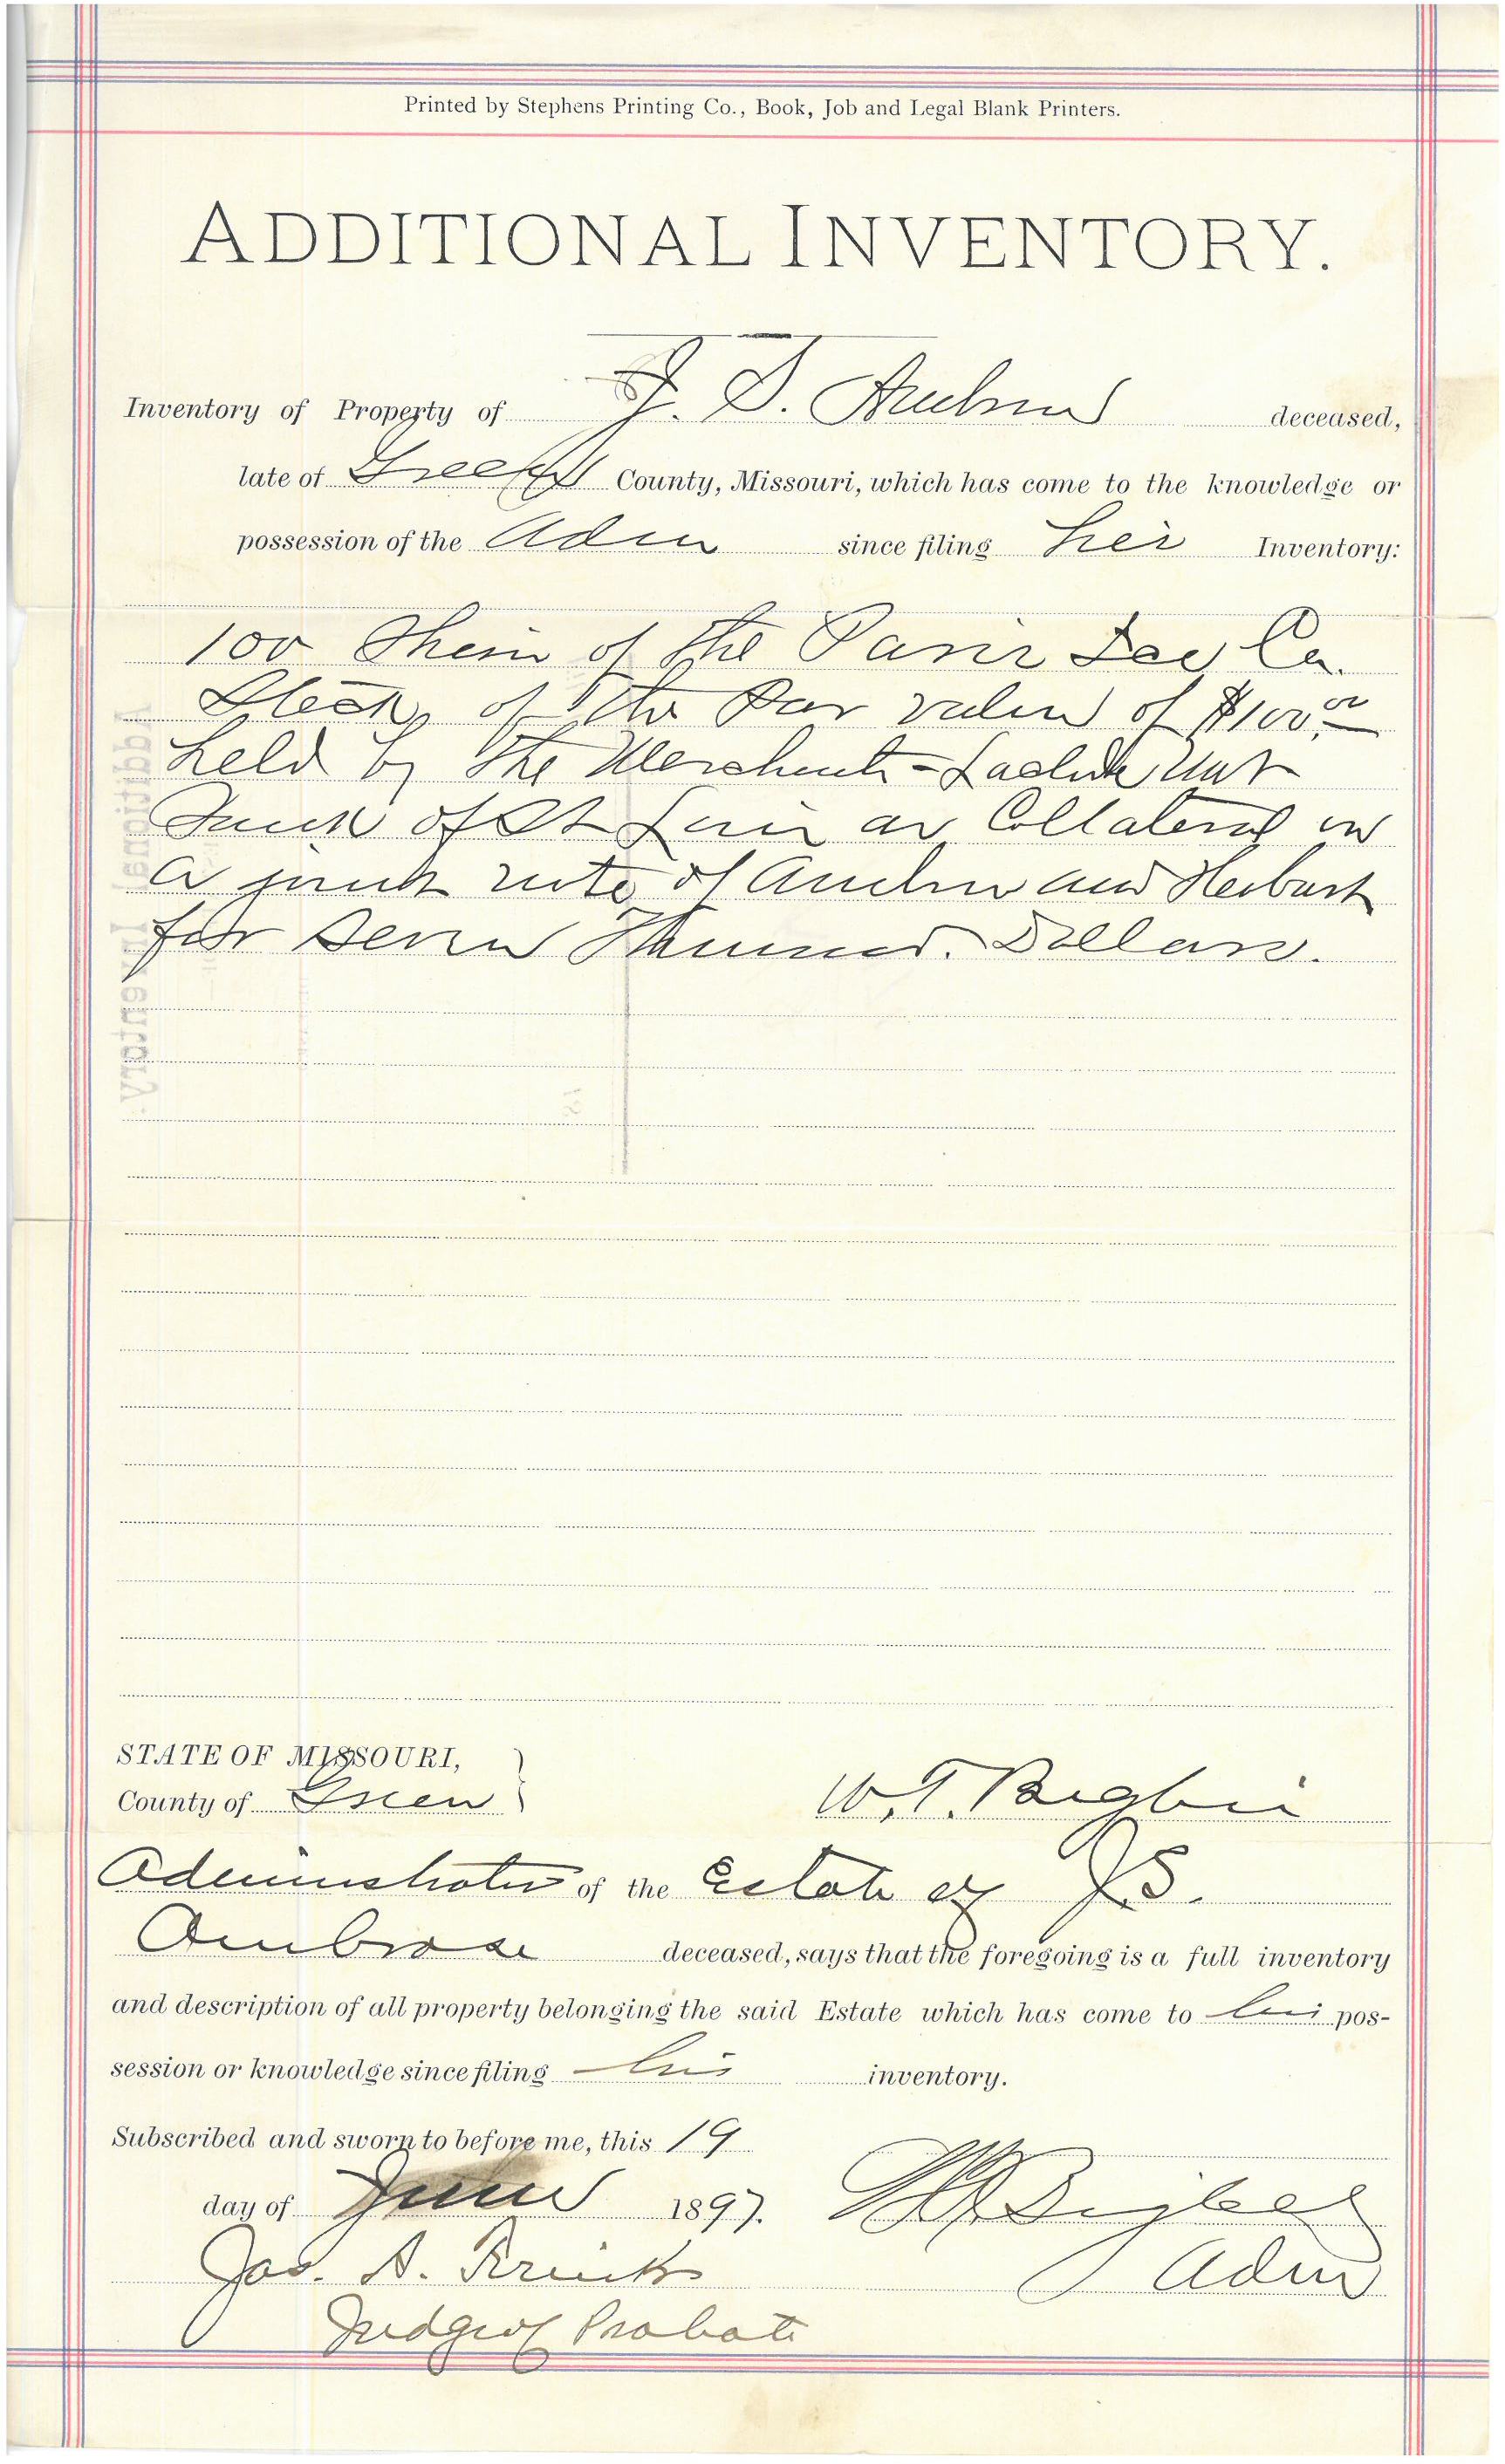 Printed by Stephens Printing Co., Book, Job and Legal Blank Printers.
ADDITIONAL INVENTORY.
Inventory of Property of J. S. Ambrose deceased,
late of Greene County, Missouri, which has come to the knowledge or
possession of the Adm since filing his Inventory:
100 Shares of the Paris Co.
Stock, of the Par value of $100.00
held by the Merchants-Laclede Nat
Bank of St Louis as Collateral on
a joint note of Ambrose and Herbert
for Seven Thousand. Dollars.
Additional Inventory.
STATE OF MISSOURI,
County of Greene
W. T. Bigbee
Administrator of the Estate of J. S.
Ambrose deceased, says that the foregoing is a full inventory
and description of all property belonging the said Estate which has come to his pos-
session or knowledge since filing his inventory.
Subscribed and sworn to before me, this 19
day of June 1897. W T Bigbee
Jas. A. Adm
Judge of Probate